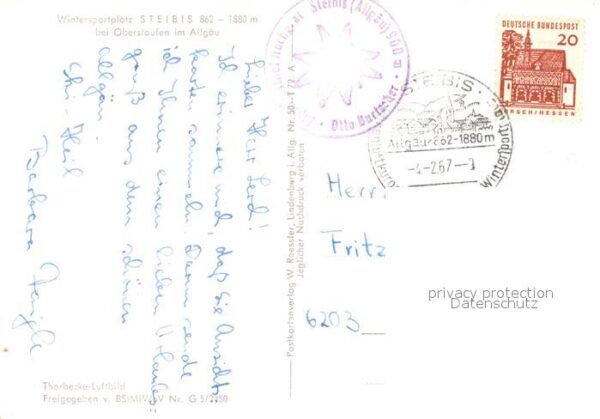 Wintersportplatz STEIBIS 862 – 1880 m
bei Oberstaufen im Allgäu
Lieber Herr Lerd!
Ich erinnere mich, daß Sie Ansichts-
karten sammeln. Darum sende
ich Ihnen einen lieben Urlaubs-
gruß aus dem schönen
Allgäu.
Ski-Heil
Barbara
Thorbecke-Luftbild
Freigegeben v. BStMIWuV Nr. G 5/2450
Postkartenverlag W. Roessler, Lindenberg i. Allg. Nr. 50-1772 A
Jeglicher Nachdruck verboten
Steibis (Allgäu) 900 m
Otto
DEUTSCHE BUNDESPOST
20
LORSCH/HESSEN
STEIBIS
Allgäu·862-1880m
-4-2.67-
Herr
Fritz
6203
privacy protection
Datenschutz